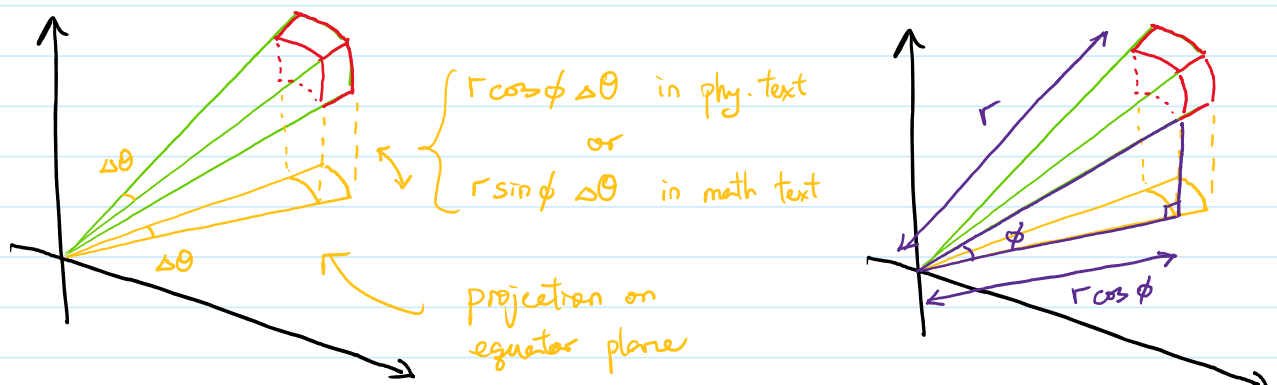 Δθ
Δθ
r cos ϕ Δθ in phy. text
or
r sin ϕ Δθ in math text
projection on
equator plane
r
ϕ
r cos ϕ